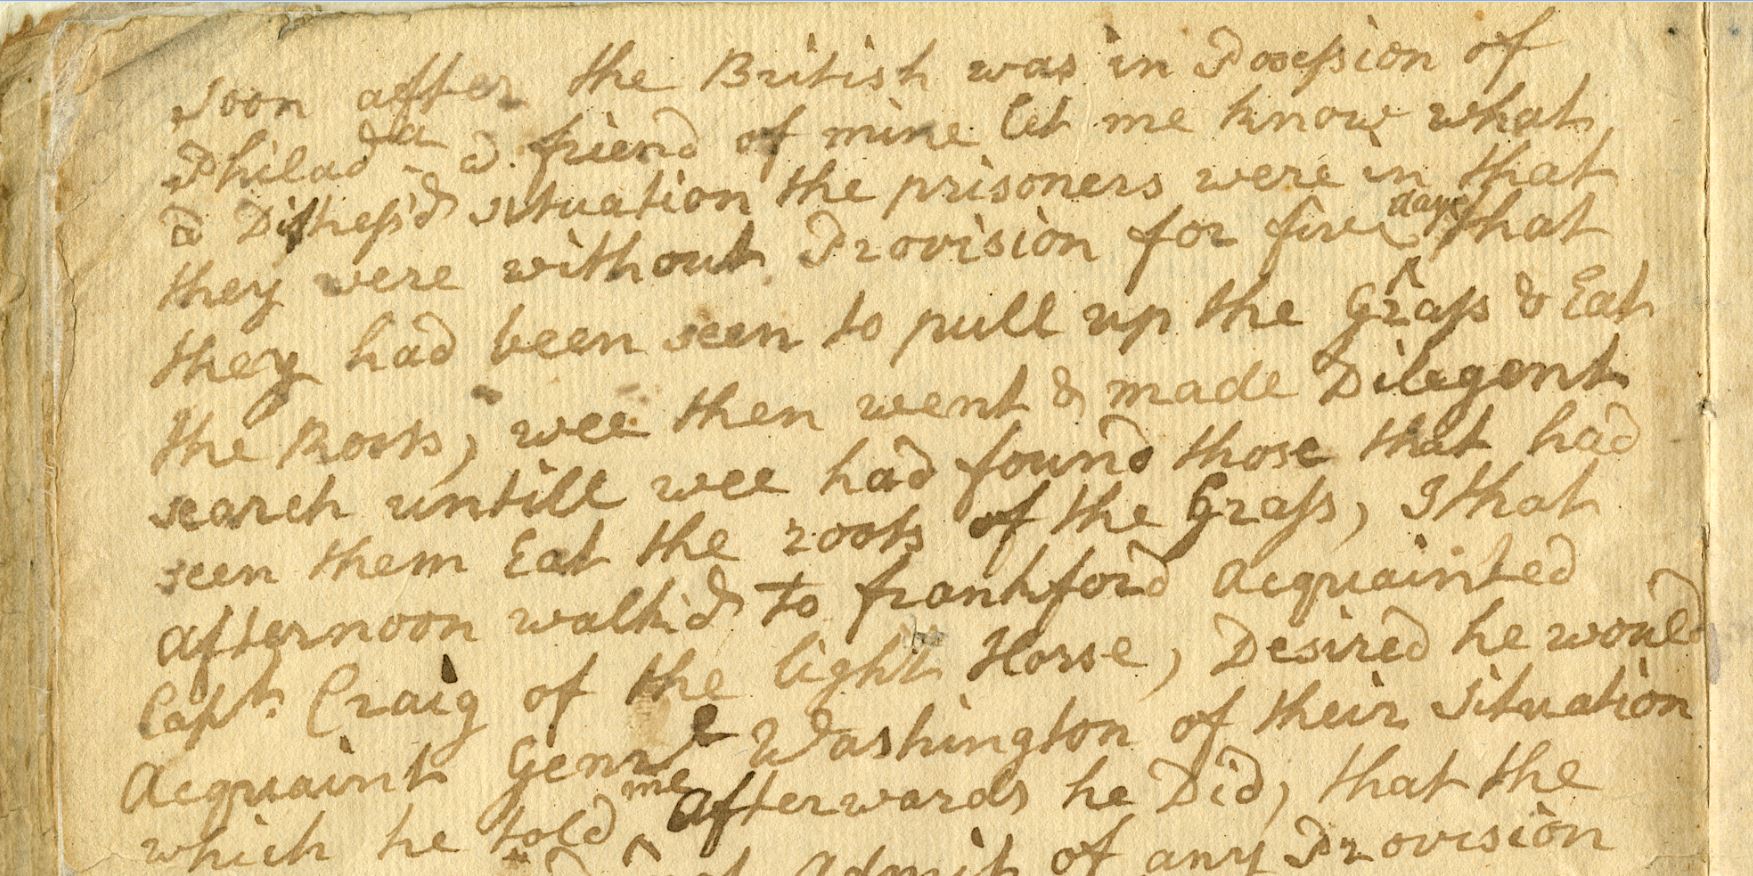 Soon after the British was in Posession of
Philad^da - a friend of mine let me know what
a Distress'd situation the prisoners were in that
they were without Provision for five ^days that
they had been seen to pull up the Grass & Eat
the Roots, wee then went & made Dilegent
search untill wee had found those that had
seen them Eat the roots of the Grass, I that
afternoon walk'd to frankford Acquainted
Capt. Craig of the light Horse, Desired he would
Acquaint Genrl Washington of their Situation
which he told ^me Afterwards he Did, that the
Admit of any Provision